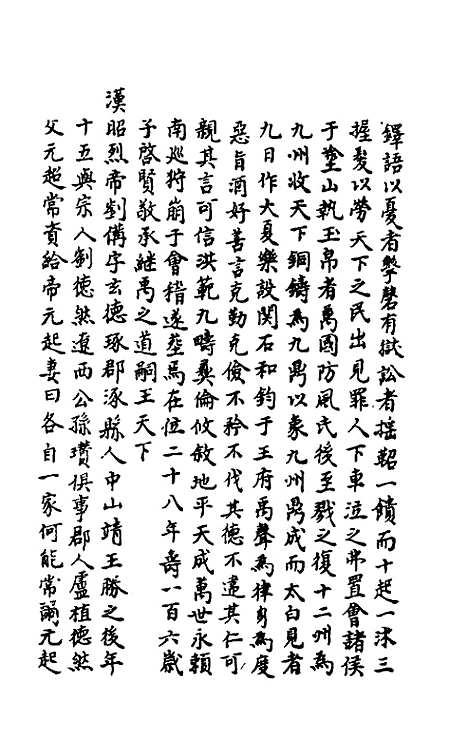 鐸語以憂者擊磬有獄訟者揺鞀一饋而十起一沐三
握髮以勞天下之民出見罪人下車泣之弗置會諸侯
于塗山執玉帛者萬國防風氏後至戮之復十二州為
九州收天下銅鑄為九鼎以象九州鼎成而太白見者
九日作大夏樂設関石和鈞于王府禹聲為律身為度
惡旨酒好善言克勤克儉不矜不伐其德不違其仁可
親其言可信洪範九疇彝倫攸敘地平天成萬世永賴
南巡狩崩于會稽遂塟焉在位二十八年壽一百六歲
子啓賢敬承継禹之道嗣王天下
漢昭烈帝劉備字玄德琢郡涿縣人中山靖王勝之後年
十五與宗人劉德然遼西公孫瓚俱事郡人盧植德然
父元起常資給帝元起妻曰各自一家何能常爾元起